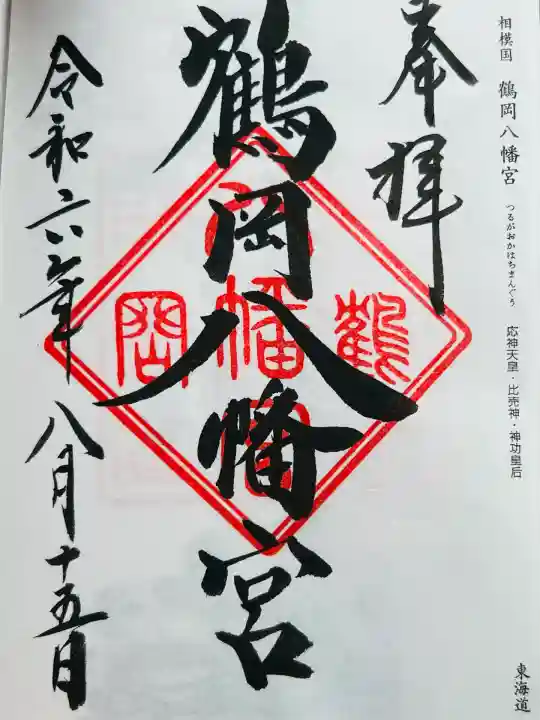 相模国 鶴岡八幡宮 つるがおかはちまんぐう 応神天皇・比売神・神功皇后
東海道
奉拝
鶴岡八幡宮
令和六年八月十五日
鶴
幡
岡